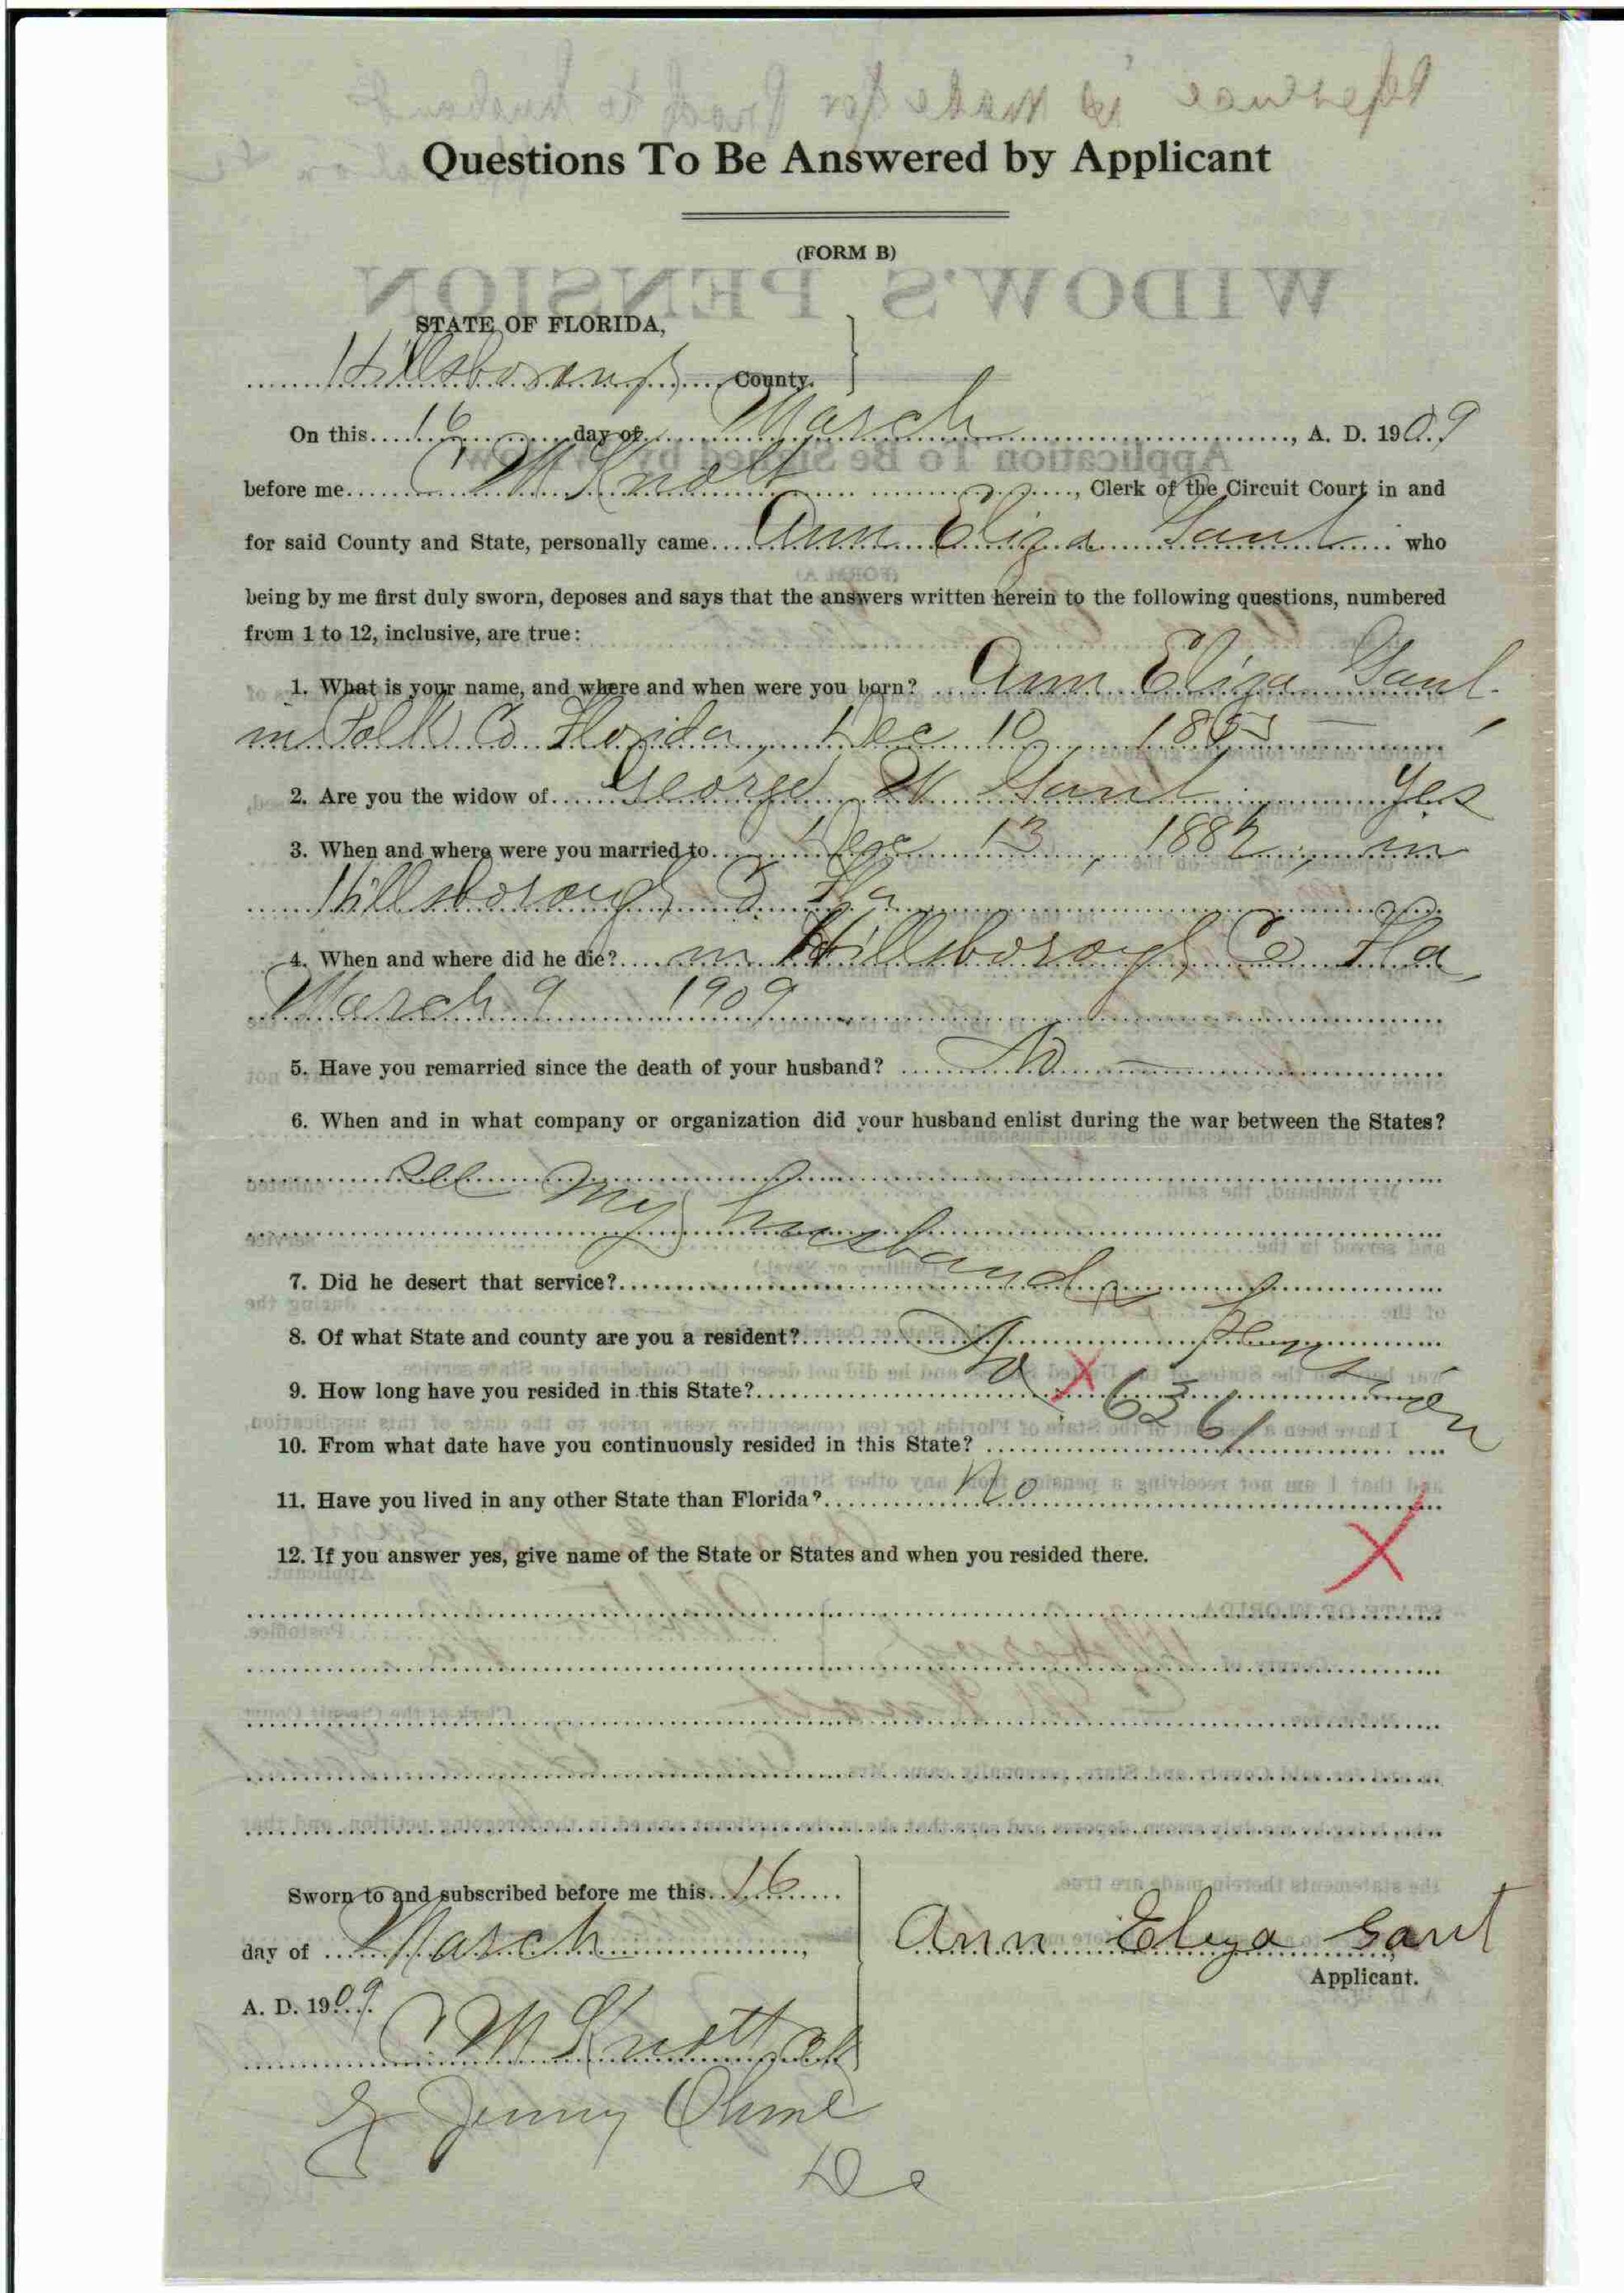 Questions To Be Answered by Applicant
(FORM B)
STATE OF FLORIDA,
Hillsborough County.
On this 16 day of March, A. D. 1909
before me C M Knott, Clerk of the Circuit Court in and
for said County and State, personally came Ann Eliza Gant who
being by me first duly sworn, deposes and says that the answers written herein to the following questions, numbered
from 1 to 12, inclusive, are true:
1. What is your name, and where and when were you born? Ann Eliza Gant.
in Polk Co Florida, Dec 10, 1865
2. Are you the widow of George W Gant Yes
3. When and where were you married to Dec 13, 1882, in
Hillsborough Co Fla
4. When and where did he die? in Hillsborough Co Fla
March 9 1909
5. Have you remarried since the death of your husband? No
6. When and in what company or organization did your husband enlist during the war between the States?
see my husbands Pension
7. Did he desert that service?
8. Of what State and county are you a resident?
No X 6361
9. How long have you resided in this State?
10. From what date have you continuously resided in this State?
11. Have you lived in any other State than Florida? No
12. If you answer yes, give name of the State or States and when you resided there. X
Sworn to and subscribed before me this 16
day of March,
A. D. 1909.
C M Knott Clk
Ann Eliza Gant
Applicant.
By Jenny
DC